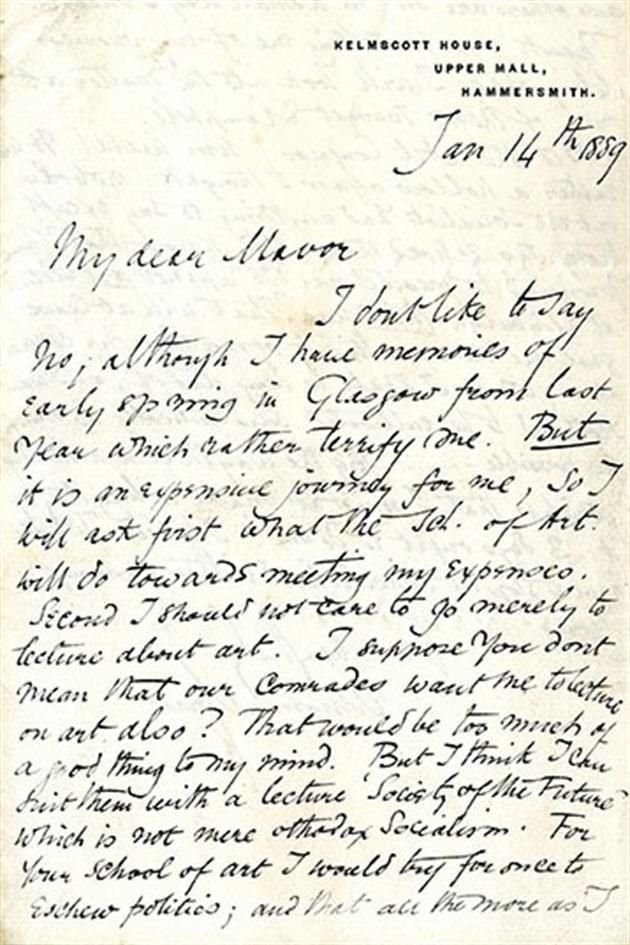 KELMSCOTT HOUSE,
UPPER MALL,
HAMMERSMITH.
Jan 14th 1889
My dear Mavor
I dont like to say
No; although I have memories of
early spring in Glasgow from last
year which rather terrify me. But
it is an expensive journey for me, so I
will ask first what the Sch. of Art
will do towards meeting my expenses.
Second I should not care to go merely to
lecture about art. I suppose you dont
mean that our comrades want me to lecture
on art also? That would be too much of
a good thing to my mind. But I think I can
suit them with a lecture 'Society of the Future'
which is not mere othodox Socialism. For
your school of art I would try for once to
eschew politics; and that all the more as I